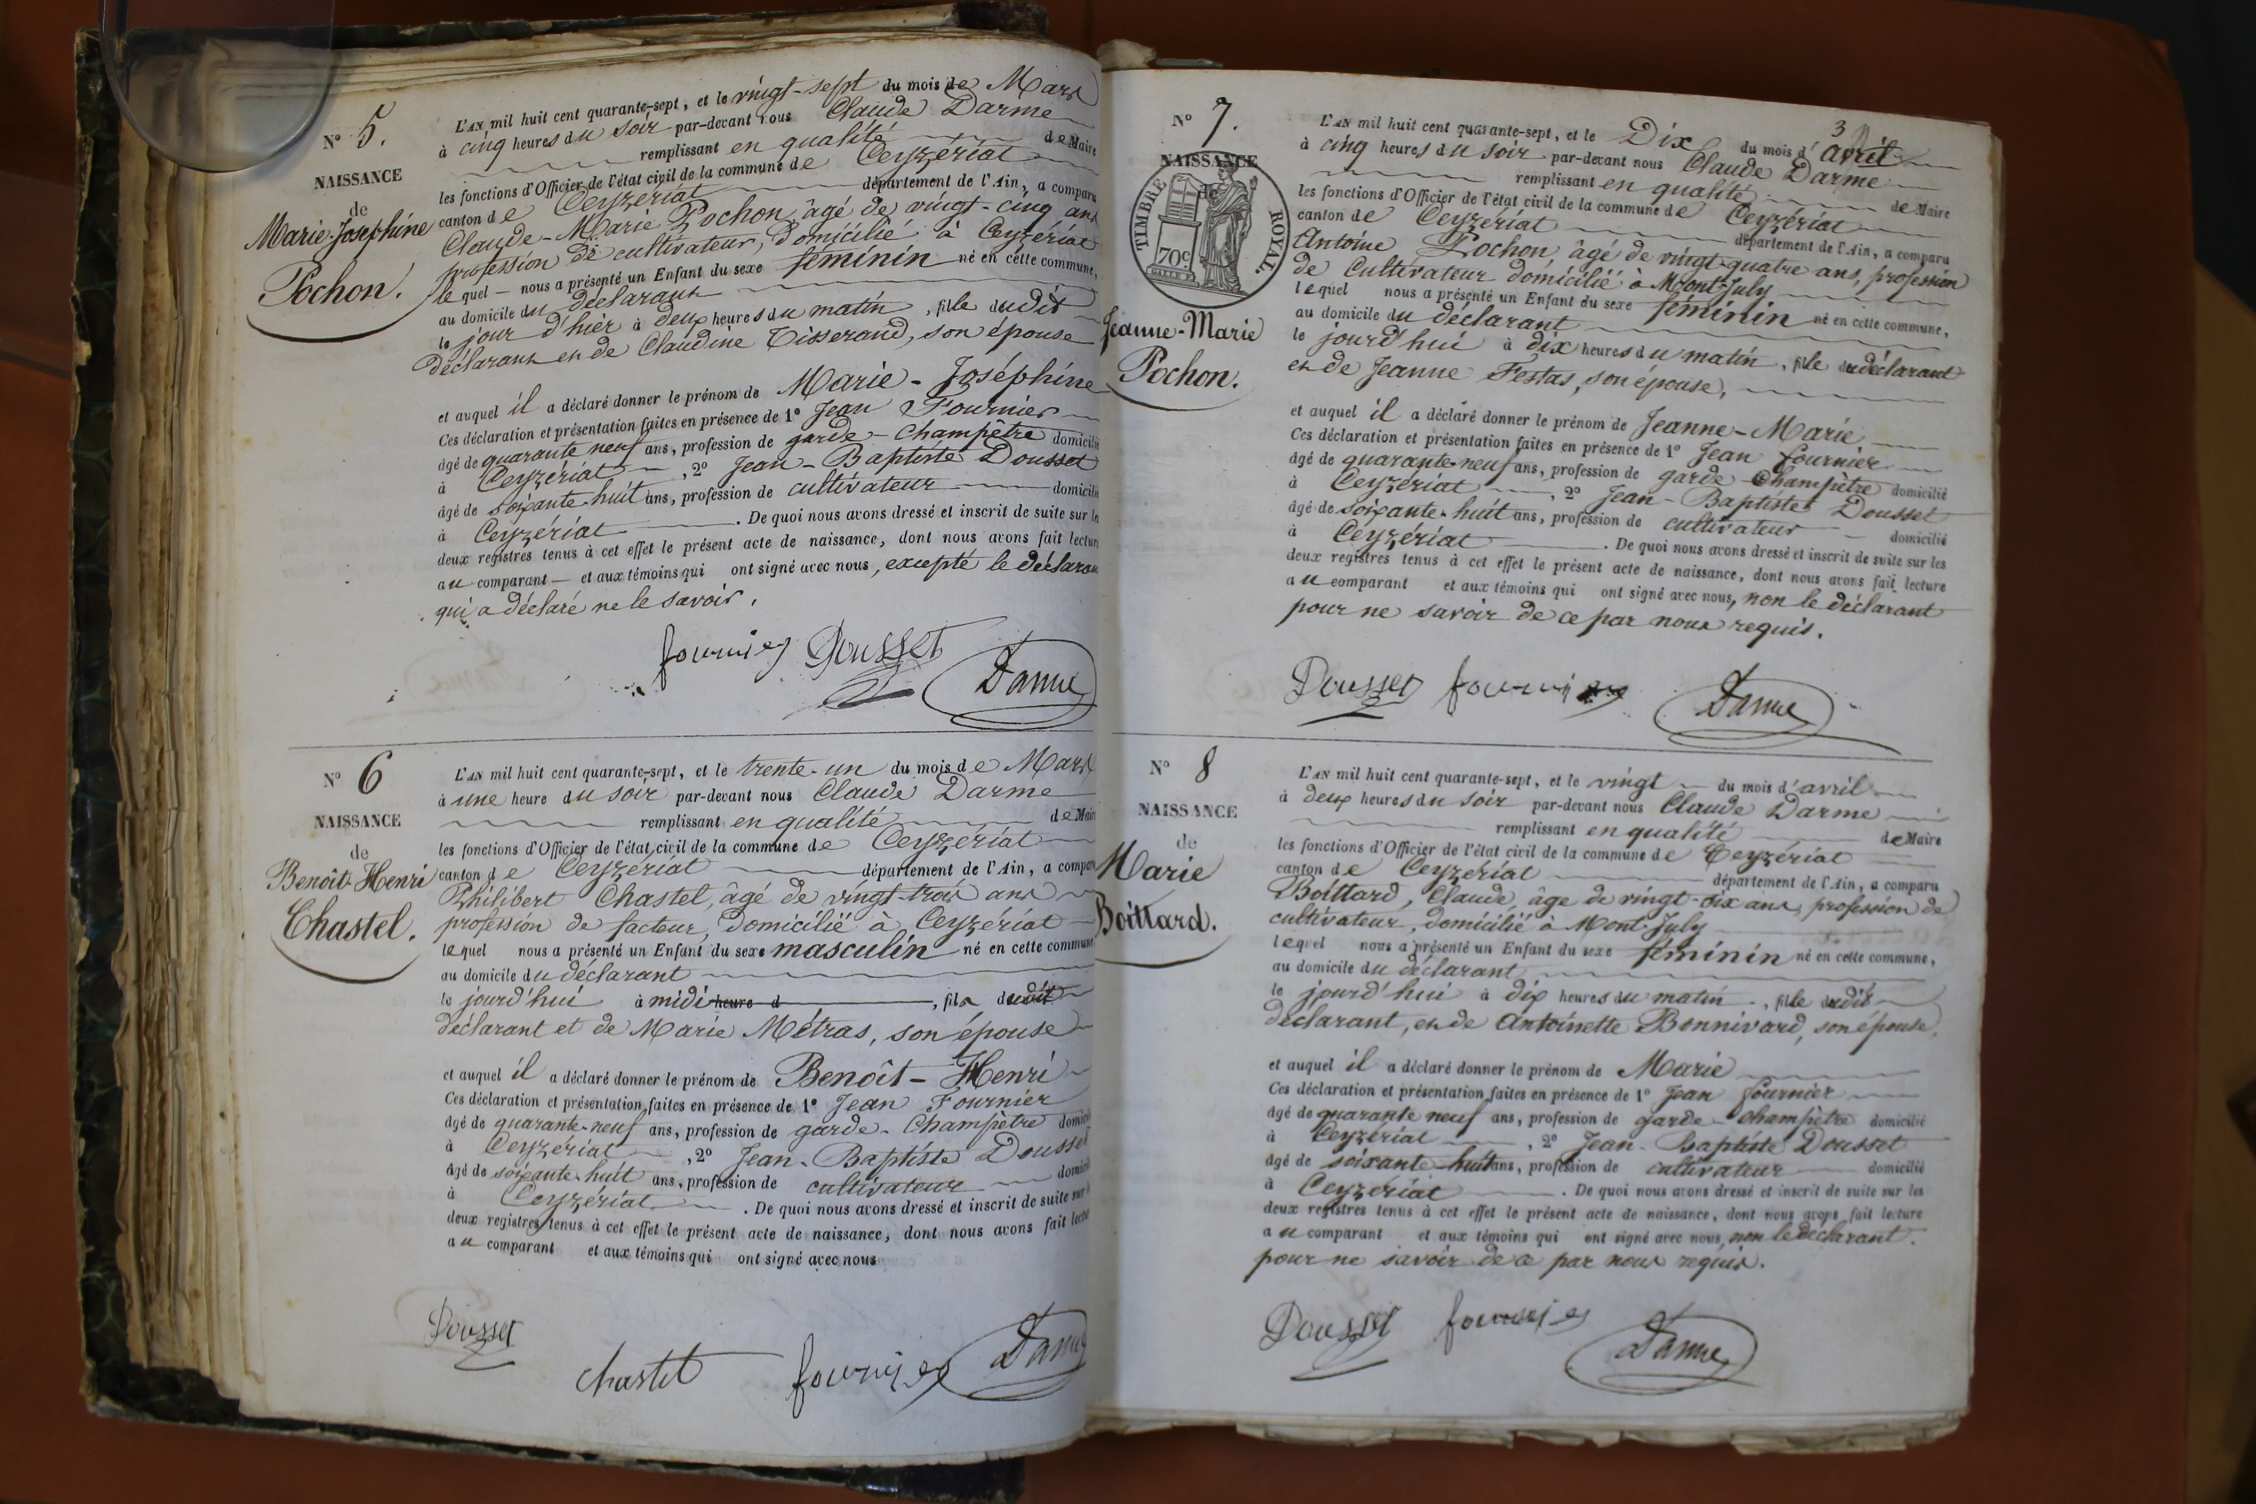 N° 5.
NAISSANCE
de
Marie-Joséphine
Pochon.
L'AN mil huit cent quarante-sept, et le vingt-sept du mois de Mars
à cinq heures du soir par-devant nous Claude Darme
remplissant en qualité de Maire
les fonctions d'Officier de l'état civil de la commune de Ceyzériat
canton de Ceyzériat département de l'Ain, a comparu
Claude-Marie Pochon, âgé de vingt-cinq ans
profession de cultivateur, domicilié à Ceyzériat
lequel nous a présenté un Enfant du sexe féminin né en cette commune,
au domicile du déclarant
le jour d'hier à deux heures du matin, fille dudit
déclarant et de Claudine Tisserand, son épouse
et auquel il a déclaré donner le prénom de Marie-Joséphine
Ces déclaration et présentation faites en présence de 1° Jean Fournier
âgé de quarante neuf ans, profession de garde-Champêtre domicilié
à Ceyzériat, 2° Jean-Baptiste Dousset
âgé de soixante-huit ans, profession de cultivateur domicilié
à Ceyzériat. De quoi nous avons dressé et inscrit de suite sur les
deux registres tenus à cet effet le présent acte de naissance, dont nous avons fait lecture
au comparant et aux témoins qui ont signé avec nous, excepté le déclarant
qui a déclaré ne le savoir.
fournier Dousset
Darme
N° 6
NAISSANCE
de
Benoît-Henri
Chastel.
L'AN mil huit cent quarante-sept, et le trente-un du mois de Mars
à une heure du soir par-devant nous Claude Darme
remplissant en qualité de Maire
les fonctions d'Officier de l'état civil de la commune de Ceyzériat
canton de Ceyzériat département de l'Ain, a comparu
Philibert Chastel, âgé de vingt-trois ans
profession de facteur, domicilié à Ceyzériat
lequel nous a présenté un Enfant du sexe masculin né en cette commune
au domicile du déclarant
le jourd'hui à midi heure d, fils dudit
déclarant et de Marie Métras, son épouse
et auquel il a déclaré donner le prénom de Benoît-Henri
Ces déclaration et présentation faites en présence de 1° Jean Fournier
âgé de quarante-neuf ans, profession de garde-Champêtre domicilié
à Ceyzériat, 2° Jean-Baptiste Dousset
âgé de soixante-huit ans, profession de cultivateur domicilié
à Ceyzériat. De quoi nous avons dressé et inscrit de suite sur les
deux registres tenus à cet effet le présent acte de naissance, dont nous avons fait lecture
au comparant et aux témoins qui ont signé avec nous
Dousset
Chastel fournier Darme
3
N° 7.
NAISSANCE
de
TIMBRE ROYAL.
70c
Jeanne-Marie
Pochon.
L'AN mil huit cent quarante-sept, et le Dix du mois d'avril
à cinq heures du soir par-devant nous Claude Darme
remplissant en qualité de Maire
les fonctions d'Officier de l'état civil de la commune de Ceyzériat
canton de Ceyzériat département de l'Ain, a comparu
Antoine Pochon, âgé de vingt-quatre ans, profession
de Cultivateur domicilié à Mont-July
lequel nous a présenté un Enfant du sexe féminin né en cette commune,
au domicile du déclarant
le jourd'hui à dix heures du matin, fille du déclarant
et de Jeanne Festas, son épouse,
et auquel il a déclaré donner le prénom de Jeanne-Marie
Ces déclaration et présentation faites en présence de 1° Jean fournier
âgé de quarante-neuf ans, profession de garde-Champêtre domicilié
à Ceyzériat, 2° Jean-Baptiste Dousset
âgé de soixante-huit ans, profession de cultivateur domicilié
à Ceyzériat. De quoi nous avons dressé et inscrit de suite sur les
deux registres tenus à cet effet le présent acte de naissance, dont nous avons fait lecture
au comparant et aux témoins qui ont signé avec nous, non le déclarant
pour ne savoir de ce par nous requis.
Dousset fournier
Darme
N° 8
NAISSANCE
de
Marie
Boittard.
L'AN mil huit cent quarante-sept, et le vingt du mois d'avril
à deux heures du soir par-devant nous Claude Darme
remplissant en qualité de Maire
les fonctions d'Officier de l'état civil de la commune de Ceyzériat
canton de Ceyzériat département de l'Ain, a comparu
Boittard, Claude, âge de vingt-six ans, profession de
cultivateur, domicilié à Mont-July
lequel nous a présenté un Enfant du sexe féminin né en cette commune,
au domicile du déclarant
le jourd'hui à dix heures du matin, fille dudit
déclarant, et de Antoinette Bonnivard, son épouse.
et auquel il a déclaré donner le prénom de Marie
Ces déclaration et présentation faites en présence de 1° Jean fournier
âgé de quarante neuf ans, profession de garde-champêtre domicilié
à Ceyzériat, 2° Jean-Baptiste Dousset
âgé de soixante-huit ans, profession de cultivateur domicilié
à Ceyzériat. De quoi nous avons dressé et inscrit de suite sur les
deux registres tenus à cet effet le présent acte de naissance, dont nous avons fait lecture
au comparant et aux témoins qui ont signé avec nous, non le déclarant.
pour ne savoir de ce par nous requis.
Dousset fournier
Darme